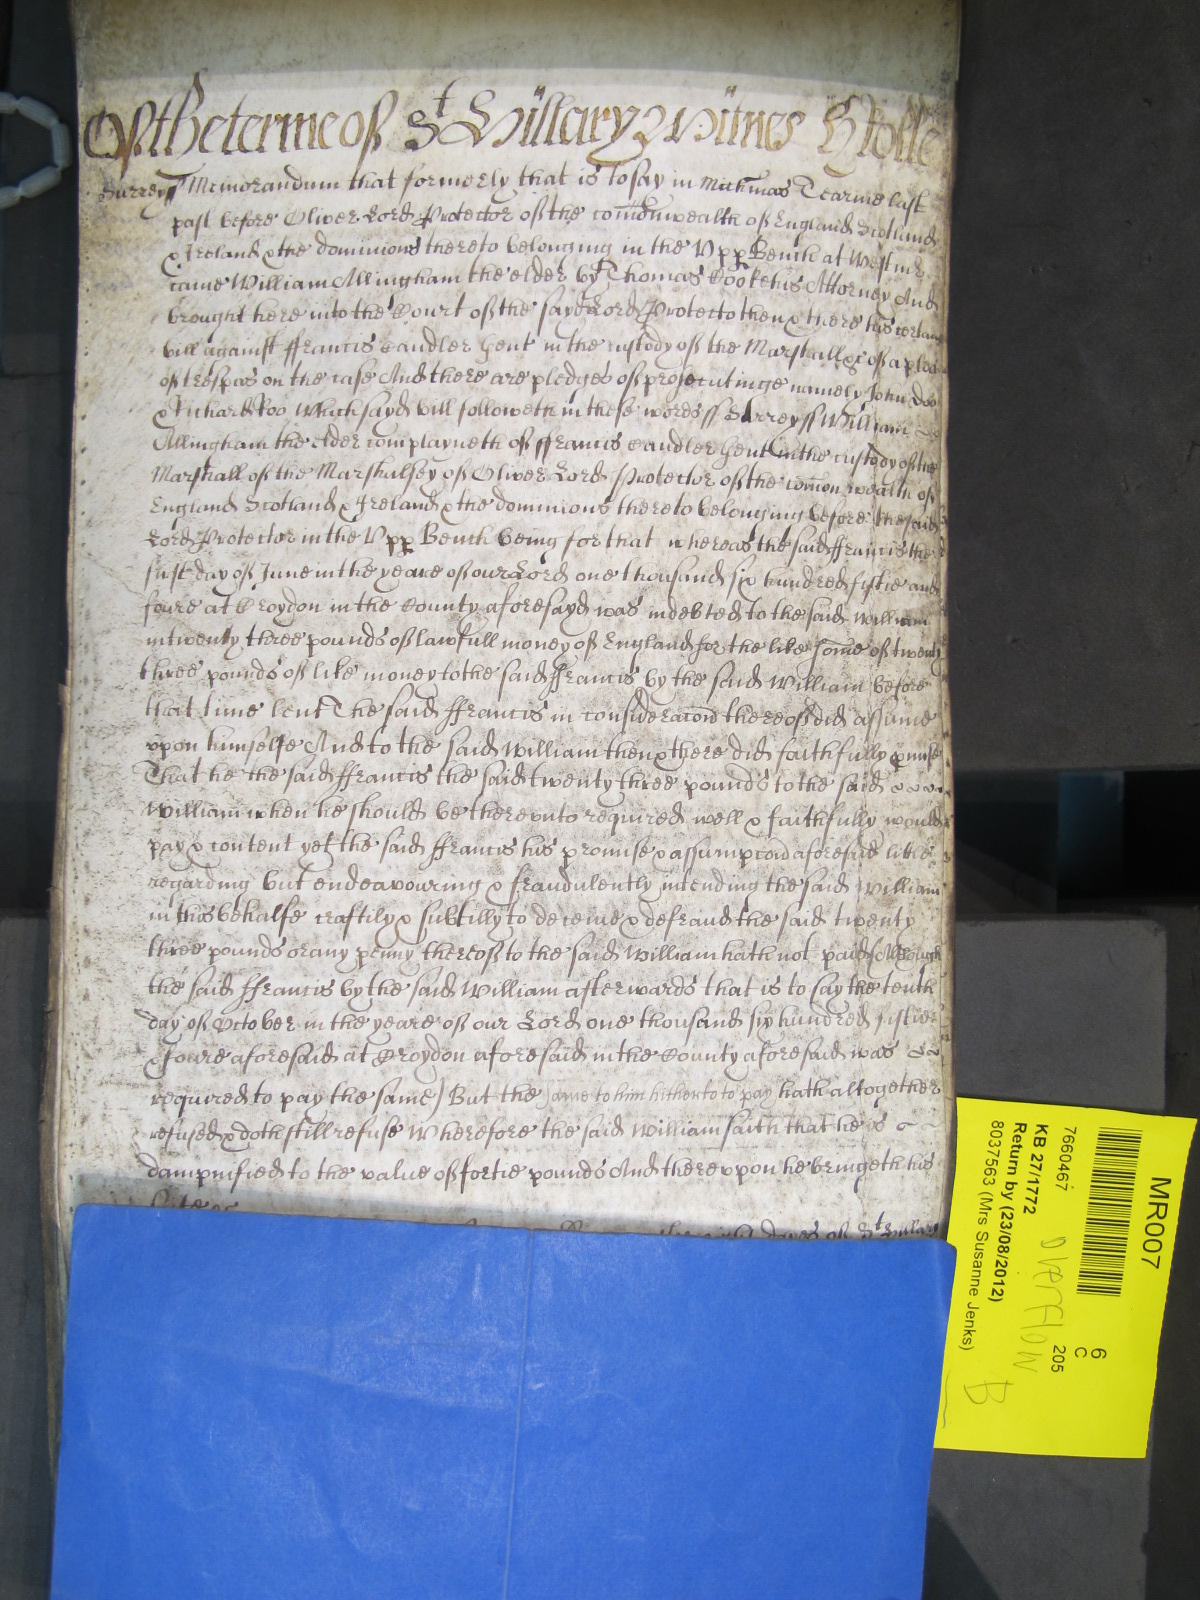 Of the terme of St Hillary Witnes H Rolle
Surrey ss Memorandum that formerly that is to say in Michmas Tearme last
past before Oliver Lord Protector of the comonwealth of England Scotland
& Ireland & the dominions thereto belonging in the Upp Bench at Westmr
came William Allingham the elder by Thomas Cooke his Attorney And
brought here into the Court of the sayd Lord Protecto then & there his certain
bill against ffrancis Candler Gent in the custody of the Marshall &c of a plea
of trespas on the case And there are pledges of prosecutinge namely John Doo
& Richard Roo Which sayd bill followeth in these words ss Surrey ss William
Allingham the elder complayneth of ffrancis Candler Gent in the custody of the
Marshall of the Marshalsey of Oliver Lord Protector of the comon wealth of
England Scotland & Ireland & the dominions thereto belonging before the said
Lord Protector in the Upp Bench being for that whereas the said ffrancis the
first day of June in the yeare of our Lord one thousand six hundred fiftie and
foure at Croydon in the County aforesayd was indebted to the said William
in twenty three pounds of lawfull money of England for the like some of twenty
three pounds of like money to the said ffrancis by the said William before
that time lent The said ffrancis in consideracon thereof did assume
upon himselfe And to the said William then & there did faithfully pmise
That he the said ffrancis the said twenty three pounds to the said
William when he should be thereunto required well & faithfully would
pay & content yet the said ffrancis his promise & assumpcon aforesaid little
regarding but endeavouring & fraudulently intending the said William
in this behalfe craftily & subtilly to deceive & defraud the said twenty
three pounds or any penny thereof to the said William hath not paid (Although
the said ffrancis by the said William afterwards that is to say the tenth
day of October in the yeare of our Lord one thousand six hundred fiftie
& foure aforesaid at Croydon aforesaid in the County aforesaid was
required to pay the same) But the same to him hitherto to pay hath altogether
refused & doth still refuse Wherefore the said William saith that he is
dampnified to the value of fortie pounds And thereupon he bringeth his
suite &c
dayes of St Hillary
MR007
7660467
KB 27/1772
Return by (23/08/2012)
8037563 (Mrs Susanne Jenks)
6
C
205
OVERFLOW
B